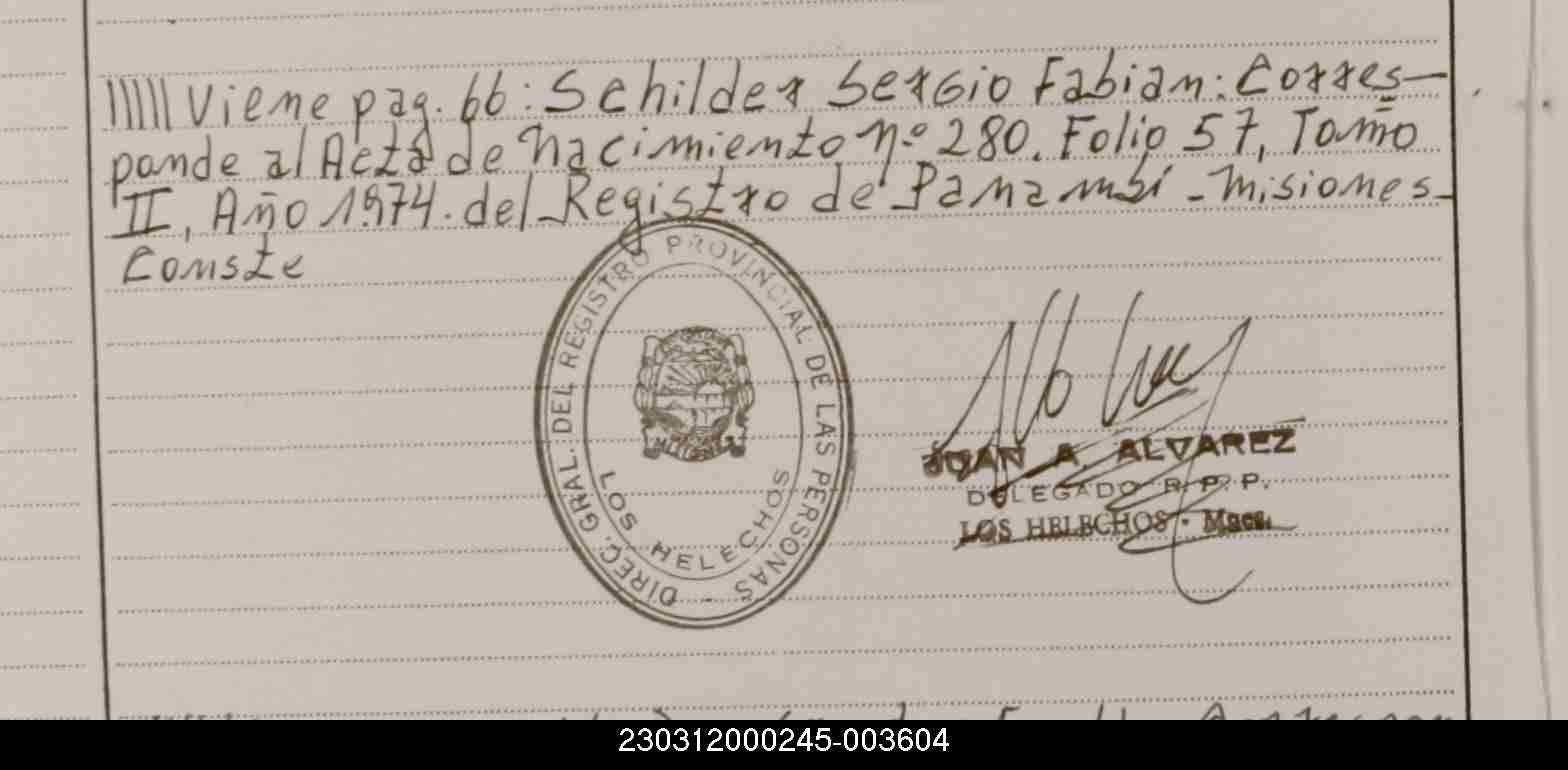 ///// Viene pag. 66: Schilder Sergio Fabian: Corres-
ponde al Acta de Nacimiento nº 280. Folio 57, Tomo
II, Año 1974. del Registro de Panambi - Misiones-
Conste
DIREC. GRAL. DEL REGISTRO PROVINCIAL DE LAS PERSONAS -
MISIONES
LOS HELECHOS
JUAN A. ALVAREZ
DELEGADO R. P. P.
LOS HELECHOS - Mnes.
230312000245-003604